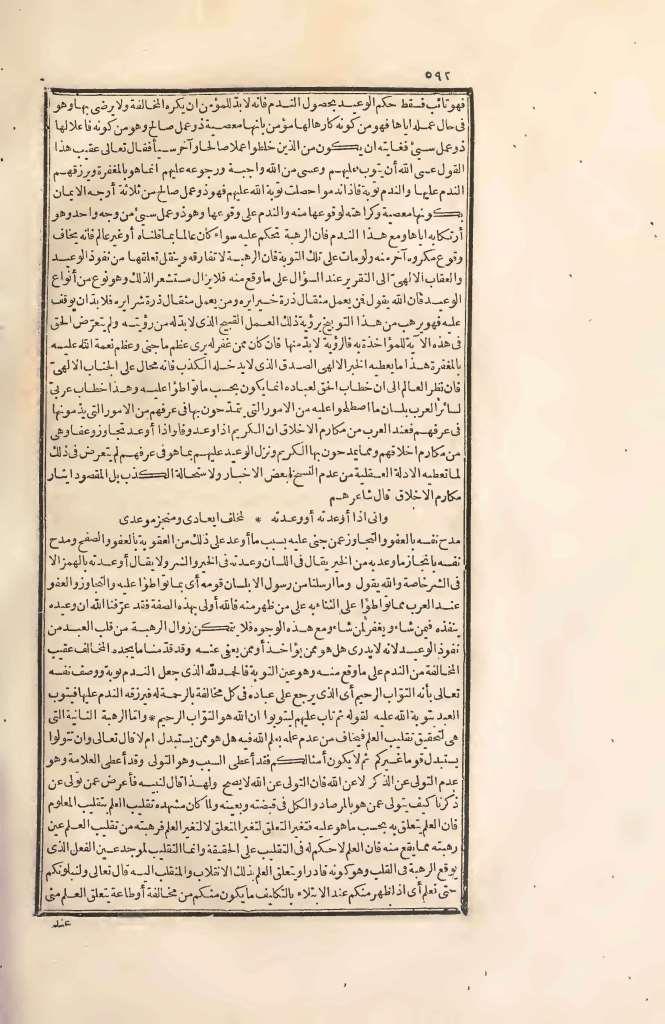 ٥٩٢
فهو تائب فقط حكم الوعيد بحصول الندم فانه لا بدّ للمؤمن ان يكره المخالفة ولا يرضى بها وهو
فى حال عمله اياها فهو من كونه كارها لها مؤمن بانها معصية ذو عمل صالح وهو من كونه فاعلا لها
ذو عمل سيئ فغايته ان يكون من الذين خلطوا عملا صالحا وآخر سيئا فقال تعالى عقيب هذا
القول عسى الله أن يتوب عليهم وعسى من الله واجبة ورجوعه عليهم انما هو بالمغفرة ويرزقهم
الندم عليها والندم توبة فاذا ندموا حصلت توبة الله عليهم فهو ذو عمل صالح من ثلاثة أوجه الايمان
بكونها معصية وكراهته لوقوعها منه والندم على وقوعها وهو ذو عمل سيئ من وجه واحد وهو
ارتكابه اياها ومع هذا الندم فان الرهبة تحكم عليه سواء كان عالما بما قلناه أو غير عالم فانه يخاف
وقوع مكروه آخر منه ولو مات على تلك التوبة فان الرهبة لا تفارقه وينتقل تعلقها من نفوذ الوعيد
والعقاب الالهىّ الى التقرير عند السؤال على ما وقع منه فلا يزال مستشعر الذلك وهو نوع من أنواع
الوعيد فان الله يقول فمن يعمل مثقال ذرة خيرا يره ومن يعمل مثقال ذرة شرا يره فلا بد ان يوقف
عليه فهو يرهب من هذا التوبيخ برؤية ذلك العمل القبيح الذى لا بد له من رؤيته ولم يتعرّض الحق
فى هذه الآية للمؤاخذة به فالرؤية لا بدّ منها فان كان ممن غفر له يرى عظم ما جنى وعظم نعمة الله عليه
بالمغفرة هذا ما يعطيه الخبر الالهى الصدق الذى لا يدخله الكذب فانه محال على الجناب الالهىّ
فان نظر العالم الى ان خطاب الحق لعباده انما يكون بحسب ما تواطؤا عليه وهذا خطاب عربىّ
لسائر العرب بلسان ما اصطلحوا عليه من الامور التى يتمدّحون بها فى عرفهم من الامور التى يذمونها
فى عرفهم فعند العرب من مكارم الاخلاق ان الكريم اذا وعد وفا واذا أوعد تجاوز وعفا وهى
من مكارم اخلاقهم ومما يمدحون بها الكريم ونزل الوعيد عليهم بما هو فى عرفهم لم يتعرض فى ذلك
لما تعطيه الادلة العقلية من عدم النسخ لبعض الاخبار ولاستحالة الكذب بل المقصود ايثار
مكارم الاخلاق قال شاعرهم
وانى اذا أوعدته أو وعدته * لمخلف ايعادى ومنجز موعدى
مدح نفسه بالعفو والتجاوز عمن جنى عليه بسبب ما أوعد على ذلك من العقوبة بالعفو والصفح ومدح
نفسه بانجاز ما وعد به من الخير يقال فى اللسان وعدته فى الخير والشر ولا يقال أوعدته بالهمز الا
فى الشر خاصة والله يقول وما ارسلنا من رسول الا بلسان قومه أى بما تواطؤا عليه والتجاوز والعفو
عند العرب مما تواطؤا على الثناء به على من ظهر منه فالله أولى بهذه الصفة فقد عرّفنا الله ان وعيده
ينفذه فيمن شاء ويغفر لمن شاء ومع هذه الوجوه فلا يتمكن زوال الرهبة من قلب العبد من
نفوذ الوعيد لانه لا يدرى هل هو ممن يؤاخذ أو ممن يعفى عنه وقد قدّمنا ما يجده المخالف عقيب
المخالفة من الندم على ما وقع منه وهو عين التوبة فالحمد لله الذى جعل الندم توبة ووصف نفسه
تعالى بأنه التوّاب الرحيم أى الذى يرجع على عباده فى كل مخالفة بالرحمة له فيرزقه الندم عليها فيتوب
العبد بتوبة الله عليه لقوله ثم تاب عليهم ليتوبوا ان الله هو التوّاب الرحيم * وامّا الرهبة الثانية التى
هى لتحقيق تقليب العلم فيخاف من عدم علمه بعلم الله فيه هل هو ممن يستبدل ام لا قال تعالى وان تتولوا
يستبدل قوما غيركم ثم لا يكون أمثالكم فقد أعطى السبب وهو التولى وقد أعطى العلامة وهو
عدم التولى عن الذكر لا عن الله فان التولى عن الله لا يصح ولهذا قال لنبيه فأعرض عمن تولى عن
ذكرنا كيف يتولى عمن هو بالمرصاد والكل فى قبضته وبعينه ولما كان مشهده تقليب العلم بتقليب المعلوم
فان العلم يتعلق به بحسب ما هو عليه فتغير التعلق لتغير المتعلق لا لتغير العلم فرهبته من تقليب العلم عين
رهبته مما يقع منه فان العلم لا حكم له فى التقليب على الحقيقة وانما التقليب لموجد عين الفعل الذى
يوقع الرهبة فى القلب وهو كونه قادرا ويتعلق العلم بذلك الانقلاب والمنقلب اليه قال تعالى ولنبلونكم
حتى نعلم أى اذا ظهر منكم عند الابتلاء بالتكاليف ما يكون منكم من مخالفة أو طاعة يتعلق العلم منى